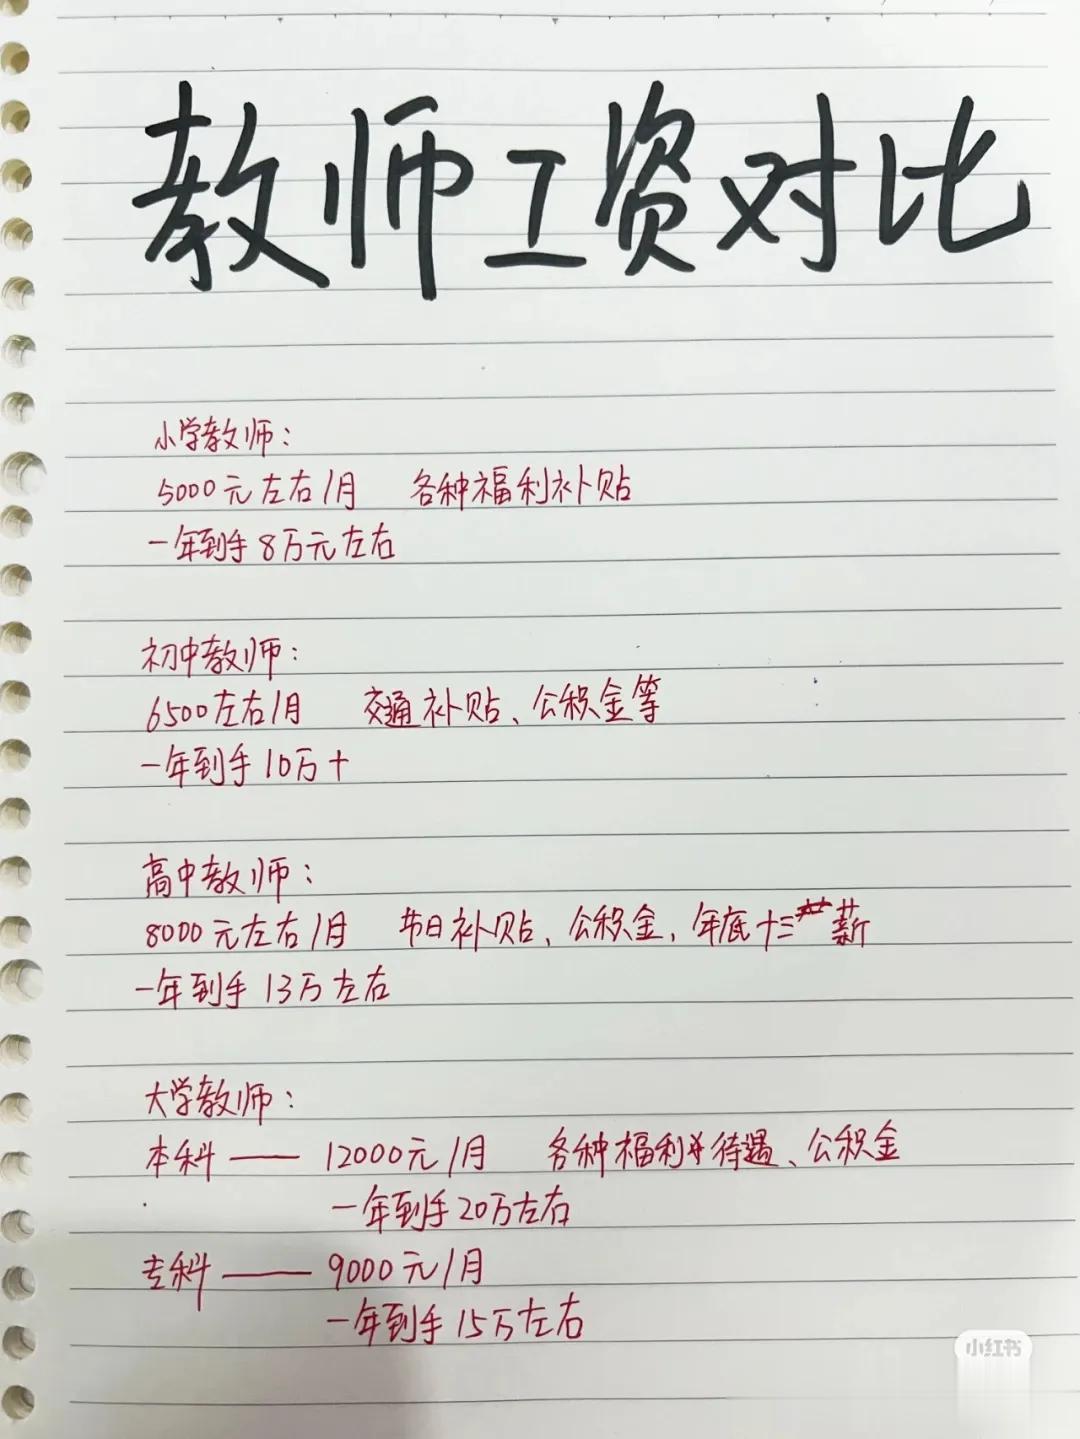 教师工资对比
小学教师：
5000元左右/月 各种福利补贴
一年到手8万元左右
初中教师：
6500左右/月 交通补贴、公积金等
一年到手10万+
高中教师：
8000元左右/月 节日补贴、公积金，年底十三薪
一年到手13万左右
大学教师：
本科——12000元/月 各种福利待遇、公积金
一年到手20万左右
专科——9000元/月
一年到手15万左右
小红书